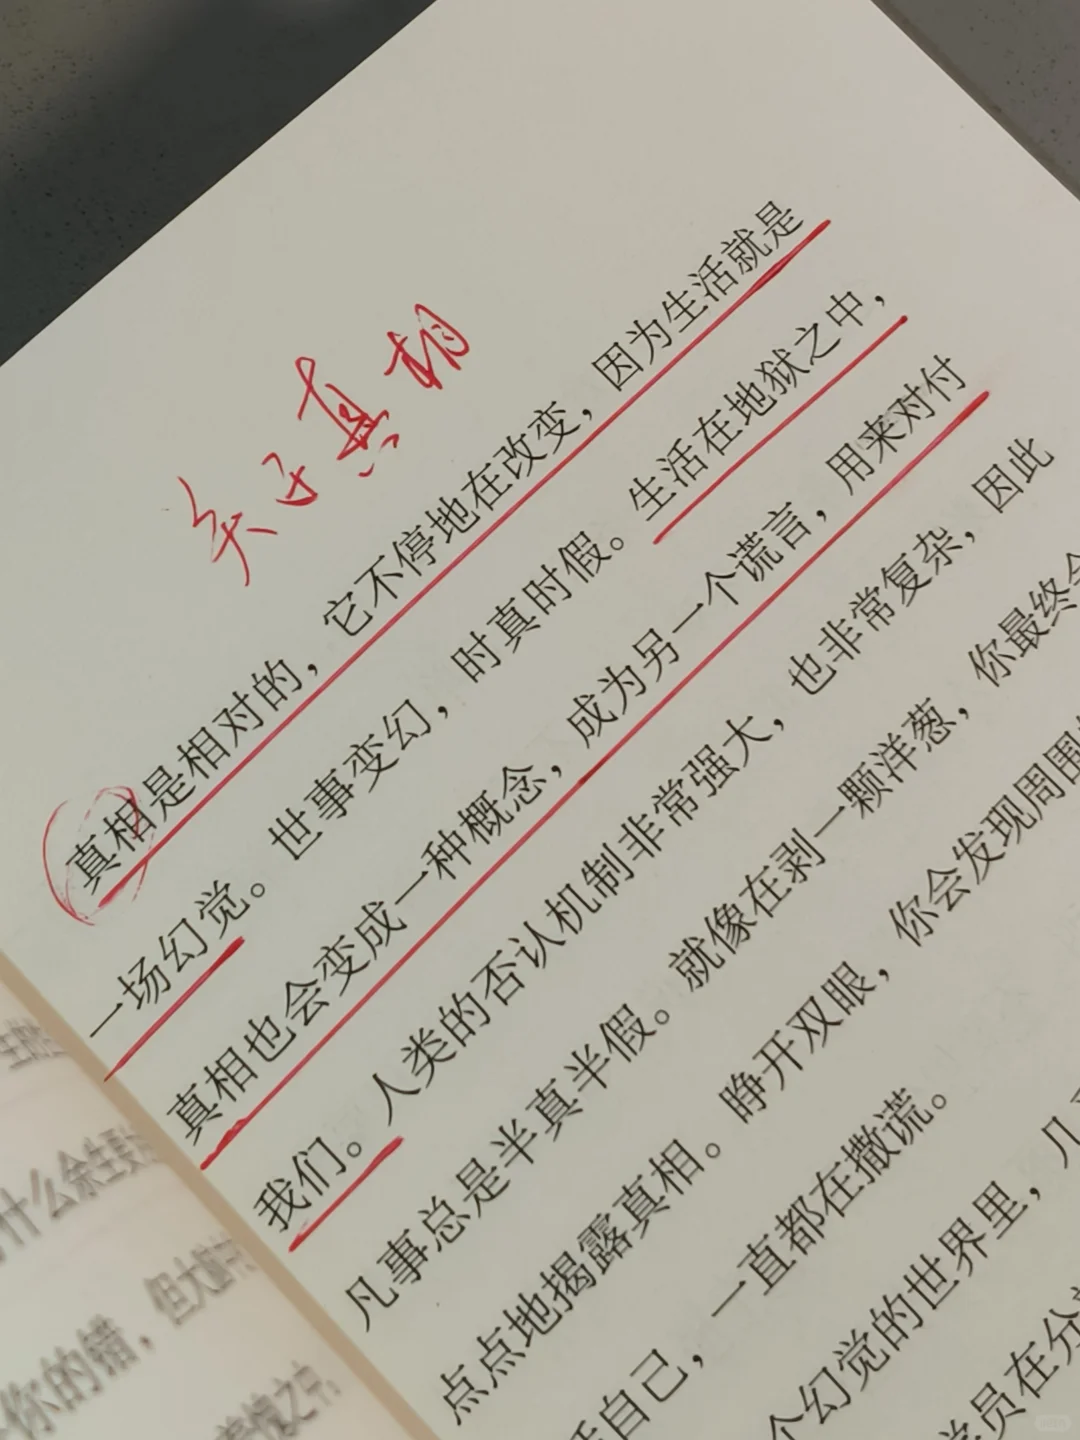 关于真相
真相是相对的，它不停地在改变，因为生活就是
一场幻觉。世事变幻，时真时假。生活在地狱之中，
真相也会变成一种概念，成为另一个谎言，用来对付
我们。人类的否认机制非常强大，也非常复杂，因此
凡事总是半真半假。就像在剥一颗洋葱，你最终会
点点地揭露真相。睁开双眼，你会发现周围
自己，一直都在撒谎。
个幻觉的世界里，几
学员在分
什么余生要
你的错，但大脑